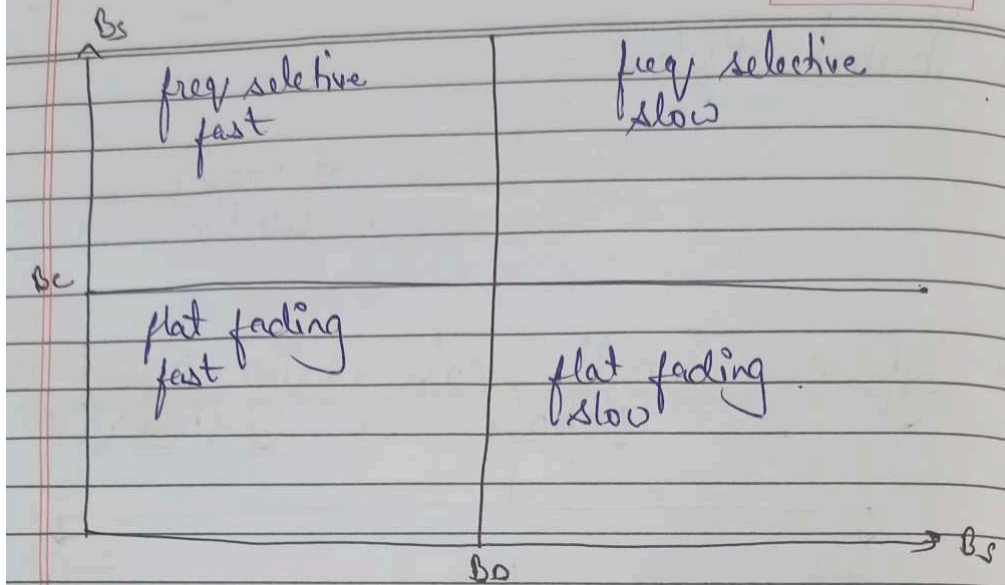 Bs
freq seletive
fast
freq selective
slow
Bc
flat fading
fast
flat fading
slow
Bs
BD